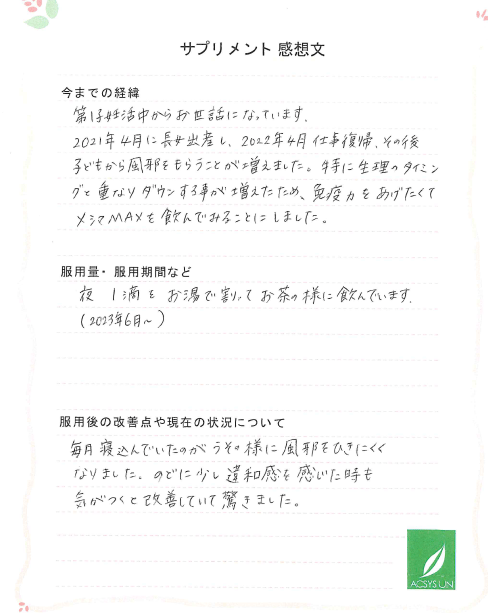 サプリメント 感想文
今までの経緯
第1子妊活中からお世話になっています.
2021年4月に長女出産し、2022年4月仕事復帰、その後
子どもから風邪をもらうことが増えました。特に生理のタイミン
グと重なりダウンする事が増えたため、免疫力をあげたくて
メシマMAXを飲んでみることにしました。
服用量・服用期間など
夜 1滴を お湯で割って お茶の様に飲んでいます.
(2023年6月〜)
服用後の改善点や現在の状況について
毎月寝込んでいたのがうその様に風邪をひきにくく
なりました. のどに少し違和感を感じた時も
気がつくと改善していて驚きました。
ACSYSUN